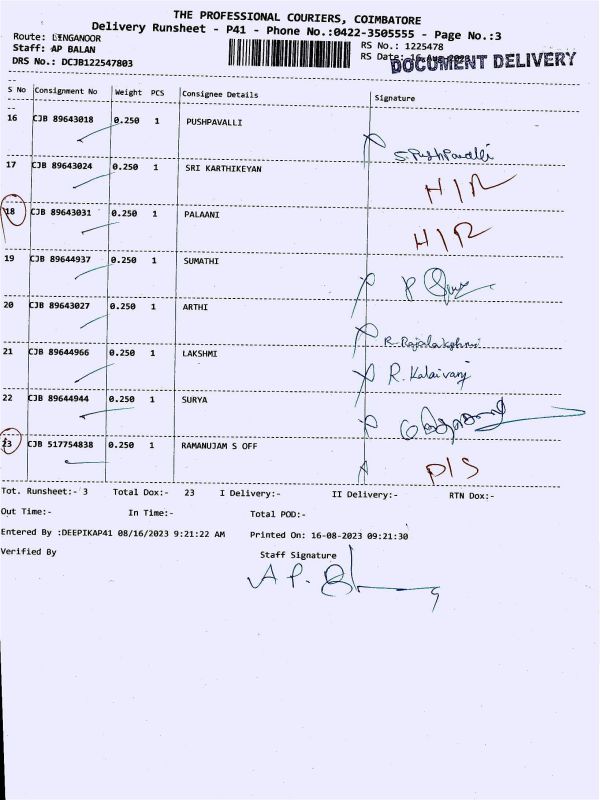 THE PROFESSIONAL COURIERS, COIMBATORE
Delivery Runsheet - P41 - Phone No.:0422-3505555 - Page No.:3
Route: LINGANOOR
Staff: AP BALAN
DRS No.: DCJB122547803
RS No.: 1225478
RS Date:
DOCUMENT DELIVERY
S No Consignment No Weight PCS Consignee Details Signature
16 CJB 89643018 0.250 1 PUSHPAVALLI
S.PushPavalli
17 CJB 89643024 0.250 1 SRI KARTHIKEYAN
H/R
18 CJB 89643031 0.250 1 PALAANI
H/R
19 CJB 89644937 0.250 1 SUMATHI
20 CJB 89643027 0.250 1 ARTHI
R-Rajalakshmi
21 CJB 89644966 0.250 1 LAKSHMI
R. Kalaivani
22 CJB 89644944 0.250 1 SURYA
23 CJB 517754838 0.250 1 RAMANUJAM S OFF
P/S
Tot. Runsheet:- 3 Total Dox:- 23 I Delivery:- II Delivery:- RTN Dox:-
Out Time:- In Time:- Total POD:-
Entered By :DEEPIKAP41 08/16/2023 9:21:22 AM Printed On: 16-08-2023 09:21:30
Verified By Staff Signature
A P.